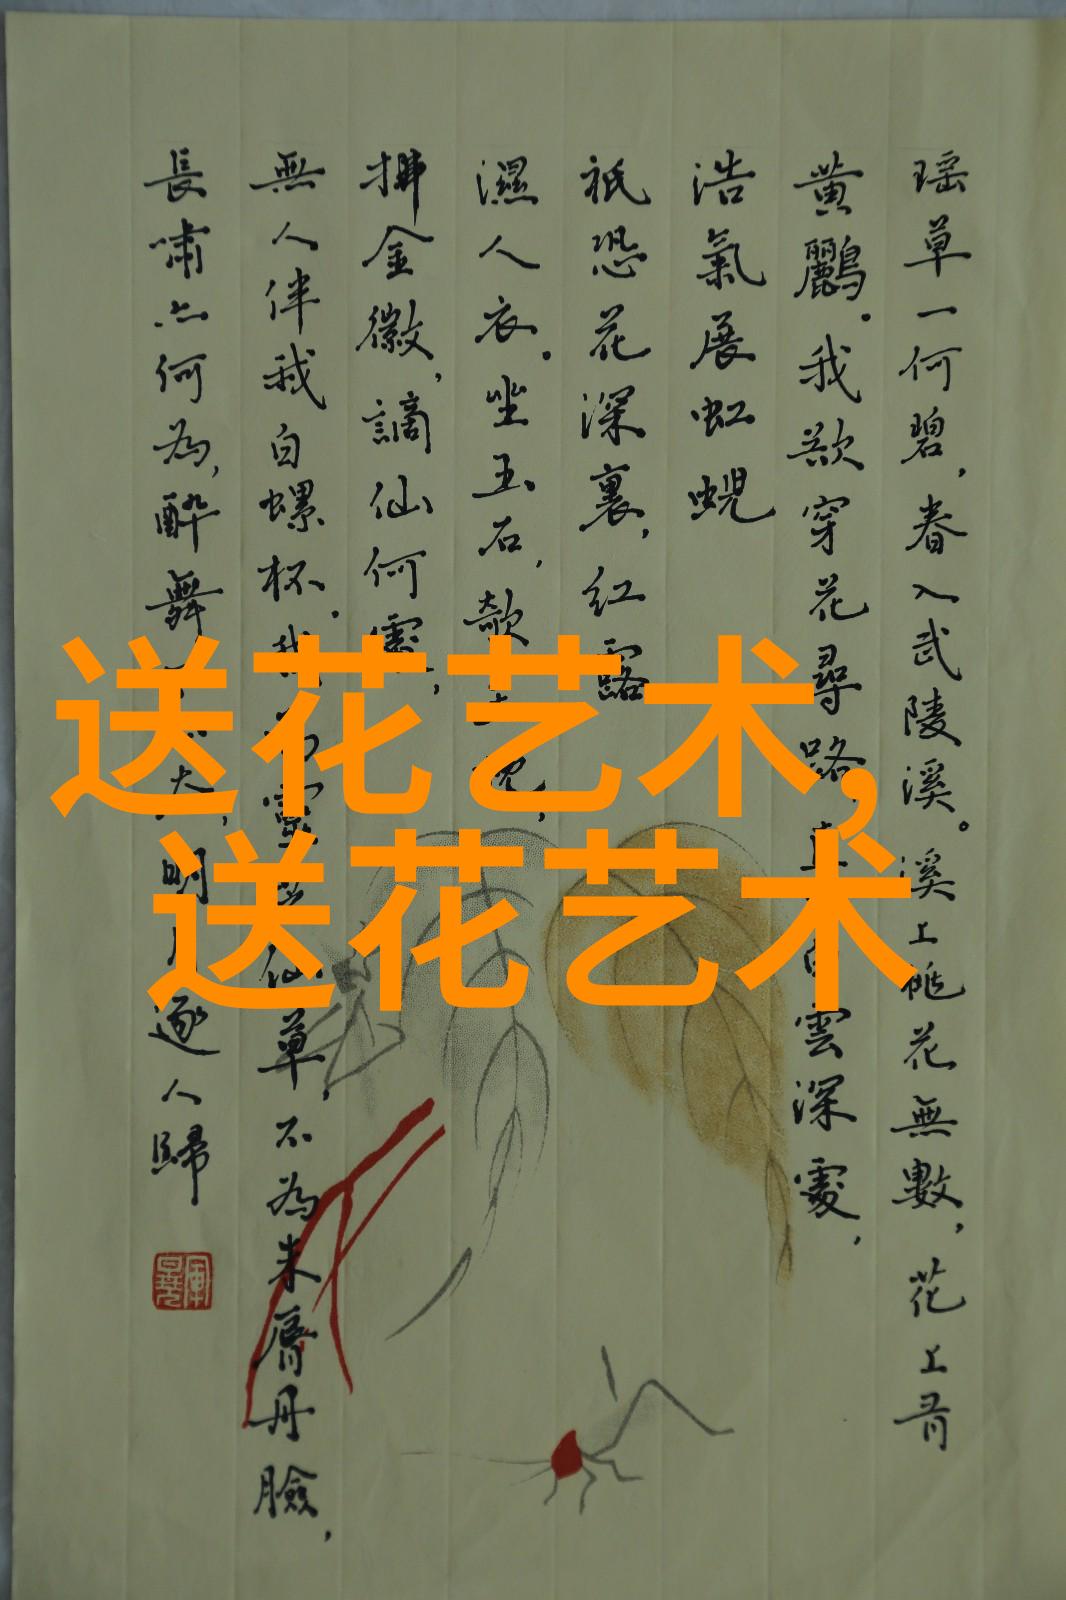 瑶草一何碧，春入武陵溪。溪上桃花無數，花上有
黄鸝。我欲穿花尋路，直白雲深處，
浩氣展虹蜺
祇恐花深裏，紅露
濕人衣。坐玉石，欹玉枕，
拂金徽，謫仙何處，
無人伴我白螺杯。我為靈芝仙草，不為朱脣丹臉，
長嘯亦何為，醉舞下山去，明月逐人歸
送花艺术，
送花艺术